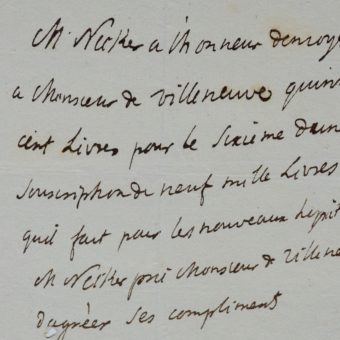 M Necker a l'honneur d'envoye
a Monsieur de villeneuve quin
cent Livres pour le Sixième d'un
Souscription de neuf mille Livres
quil fait pour les nouveaux hopit
M Necker prie Monsieur de Villene
d'agréer Ses compliments